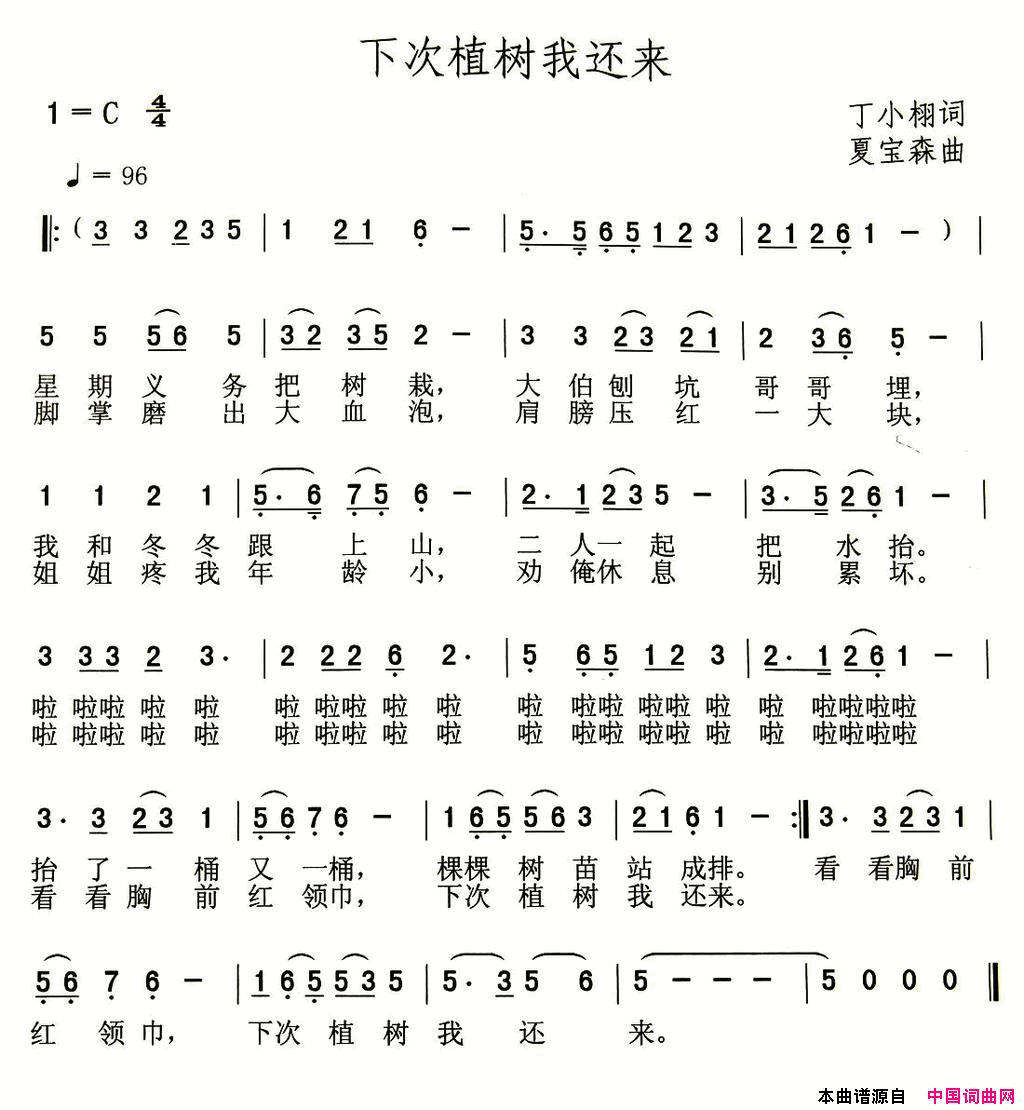 下次植树我还来
1 = C 4/4
丁小栩词
夏宝森曲
♩ = 96
‖: ( 3 3 2 3 5 | 1 2 1 6 – | 5 · 5 6 5 1 2 3 | 2 1 2 6 1 – ) |
5 5 5 6 5 | 3 2 3 5 2 – | 3 3 2 3 2 1 | 2 3 6 5 – |
星期义务把树栽，大伯刨坑哥哥埋，
脚掌磨出大血泡，肩膀压红一大块，
1 1 2 1 | 5 · 6 7 5 6 – | 2 · 1 2 3 5 – | 3 · 5 2 6 1 – |
我和冬冬跟上山，二人一起把水抬。
姐姐疼我年龄小，劝俺休息别累坏。
3 3 3 2 3 · | 2 2 2 6 2 · | 5 6 5 1 2 3 | 2 · 1 2 6 1 – |
啦 啦啦 啦 啦 啦 啦啦 啦 啦 啦 啦啦 啦啦 啦 啦 啦啦啦啦
啦 啦啦 啦 啦 啦 啦啦 啦 啦 啦 啦啦 啦啦 啦 啦 啦啦啦啦
3 · 3 2 3 1 | 5 6 7 6 – | 1 6 5 5 6 3 | 2 1 6 1 – :‖ 3 · 3 2 3 1 |
抬了一桶又一桶，棵棵树苗站成排。看看胸前
看看胸前红领巾，下次植树我还来。
5 6 7 6 – | 1 6 5 5 3 5 | 5 · 3 5 6 | 5 – – – | 5 0 0 0 ‖
红领巾，下次植树我还来。
本曲谱源自 中国词曲网